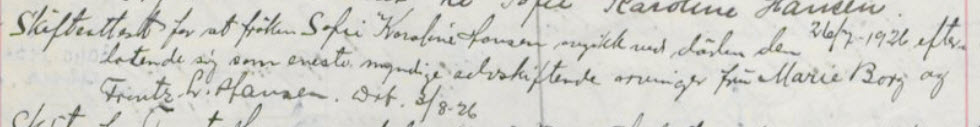 Sofie Karoline Hansen.
Skifteattest for at frøken Sofie Karoline Hansen avgikk ved døden den 26/7-1926 efter-
latende sig som eneste myndige selvskiftende arvinger frue Marie Borg og
Frentz L. Hansen. Dat. 3/8-26